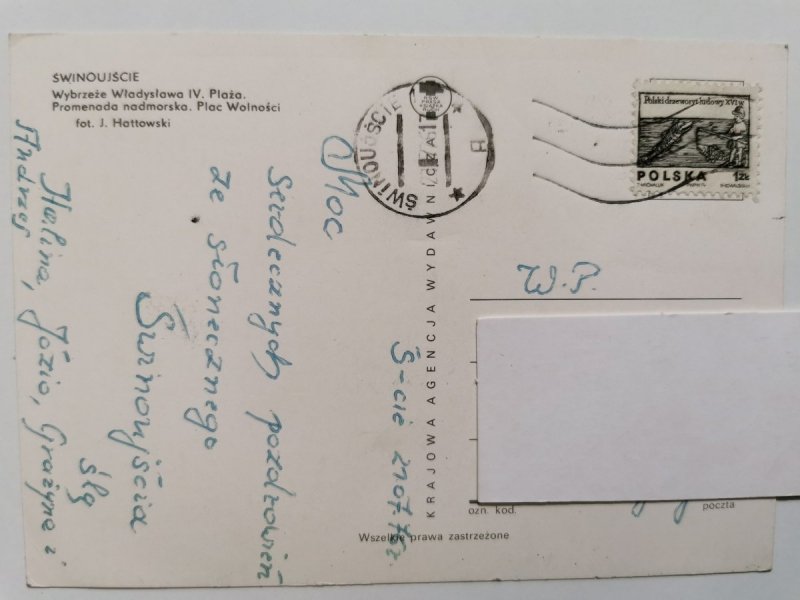 ŚWINOUJŚCIE
Wybrzeże Władysława IV. Plaża.
Promenada nadmorska. Plac Wolności
fot. J. Hattowski
Moc
serdecznych pozdrowień
ze słonecznego
Świnoujścia
ślą
Halina, Józio, Grażyna i
Andrzej
Ś-cie 21.07.76r.
KRAJOWA AGENCJA WYDAWNICZA
ŚWINOUJŚCIE
Polski drzeworyt ludowy XVI w.
POLSKA 1zł
W.P.
ozn. kod.
poczta
Wszelkie prawa zastrzeżone